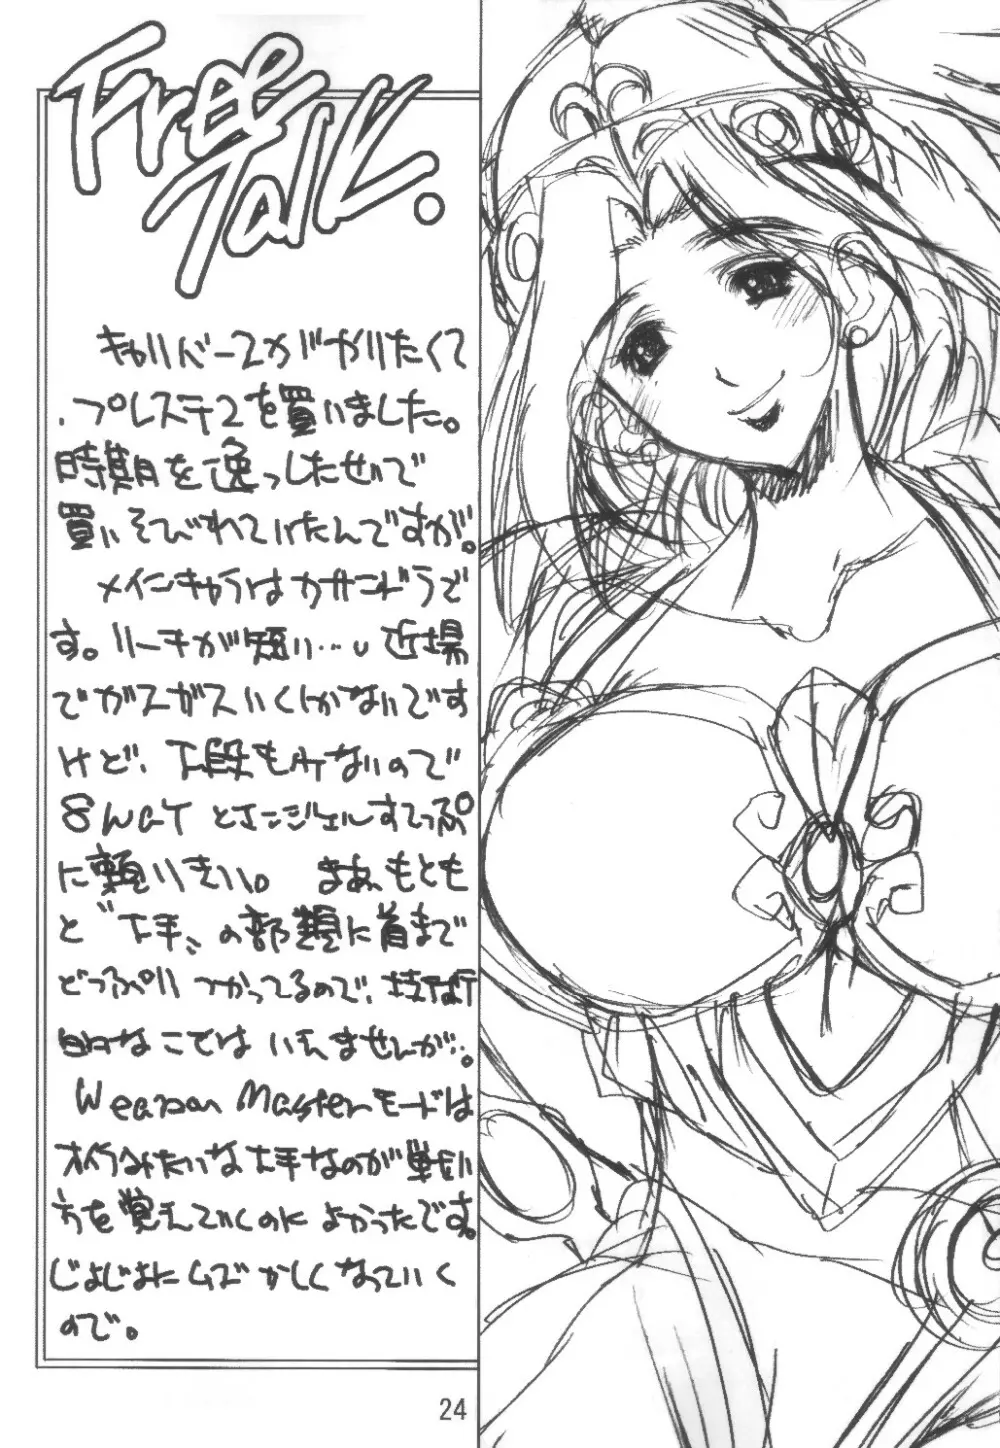 Free
Talk.
キャリバー2がやりたくて
、プレステ2を買いました。
時期を逸っしたせいで
買いそびれていたんですが。
メインキャラはカサンドラで
す。リーチが短い…近場
でガスガスいくしかないです
けど、下段もみないので
8wayとエンジェルすてっぷ
に頼りきり。まあ、もともと
と〝下手〟の部類に首まで
どっぷりつかってるので、技術
的なことではいえませんが…。
Weapon Masterモードは
オイラみたいな下手なのが戦い
方を覚えていくのによかったです。
じょじょにムズかしくなっていく
ので。
24